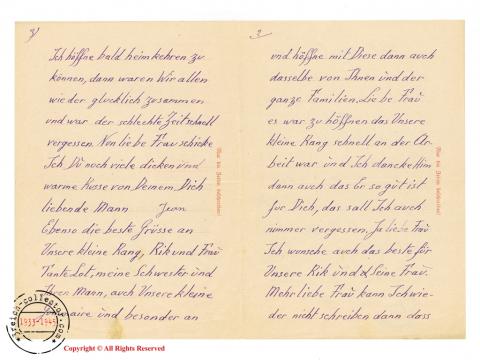 3/
Ich höffne bald heimkehren zu
können, dann waren Wir allen
wieder glucklich zesammen
und war der schlechte Zeit schnell
vergessen. Nen liebe Frau schicke
Ich Dü noch viele dicken und
warme Küsse von Deinem Dich
liebende Mann Jean
Ebenso die beste Grüsse an
Unsere kleine Rang, Rik und Frau
Tante Lot, meine Schwester und
Ihren Mann, auch Unsere kleine
und besonder an
2
und höffne mit Diese dann auch
dasselbe von Ihnen und der
ganze Familien. Liebe Frau
es war zu höffnen das Unsere
kleine Rang schnell an der Ar-
beit war und Ich dancke Him
dann auch das Er so gut ist
fur Dich, das sall Ich auch
nimmer vergessen. Ja liebe Frau
Ich wunsche auch das beste für
Unsere Rik und Seine Frau.
Mehr liebe Frau kann Ich wie-
der nicht schreiben dann dass
Nur die Zeilen beschreiben!
Nur die Zeilen beschreiben!
reich-collector.com
1933-1945
Copyright © All Rights Reserved